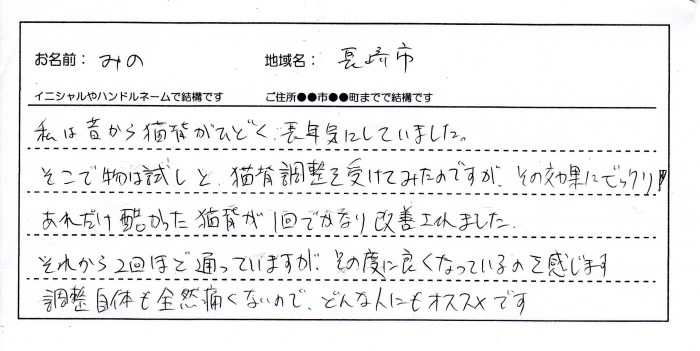 お名前： みの 地域名： 長崎市
イニシャルやハンドルネームで結構です ご住所●●市●●町までで結構です
私は昔から猫背がひどく、長年気にしていました。
そこで物は試しと、猫背調整を受けてみたのですが、その効果にビックリ!!
あれだけ酷かった猫背が1回でかなり改善されました。
それから2回ほど通っていますが、その度に良くなっているのを感じます
調整自体も全然痛くないので、どんな人にもオススメです